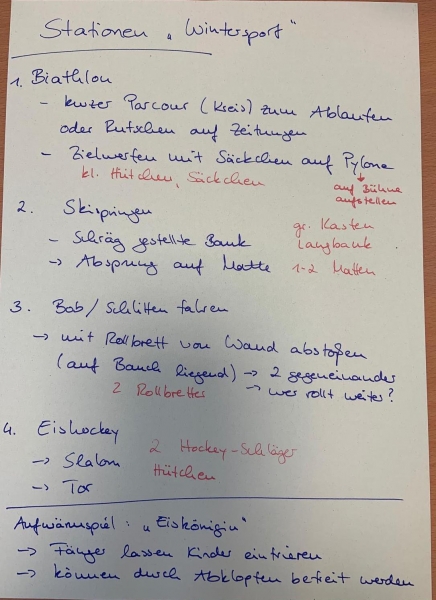 Stationen „Wintersport"
1. Biathlon
- kurzer Parcour (Kreis) zum Ablaufen
oder Rutschen auf Zeitungen
- Zielwerfen mit Säckchen auf Pylone
kl. Hütchen, Säckchen
auf Bühne
aufstellen
2. Skispringen
gr. Kasten
- Schräg gestellte Bank
Langbank
-> Absprung auf Matte
1-2 Matten
3. Bob/Schlitten fahren
-> mit Rollbrett von Wand abstoßen
(auf Bauch liegend) -> 2 gegeneinander
2 Rollbretter
-> wer rollt weiter?
4. Eishockey
2 Hockey-Schläger
-> Slalom
Hütchen
-> Tor
Aufwärmspiel: „Eiskönigin"
-> Fänger lassen Kinder einfrieren
-> können durch Abklopfen befreit werden